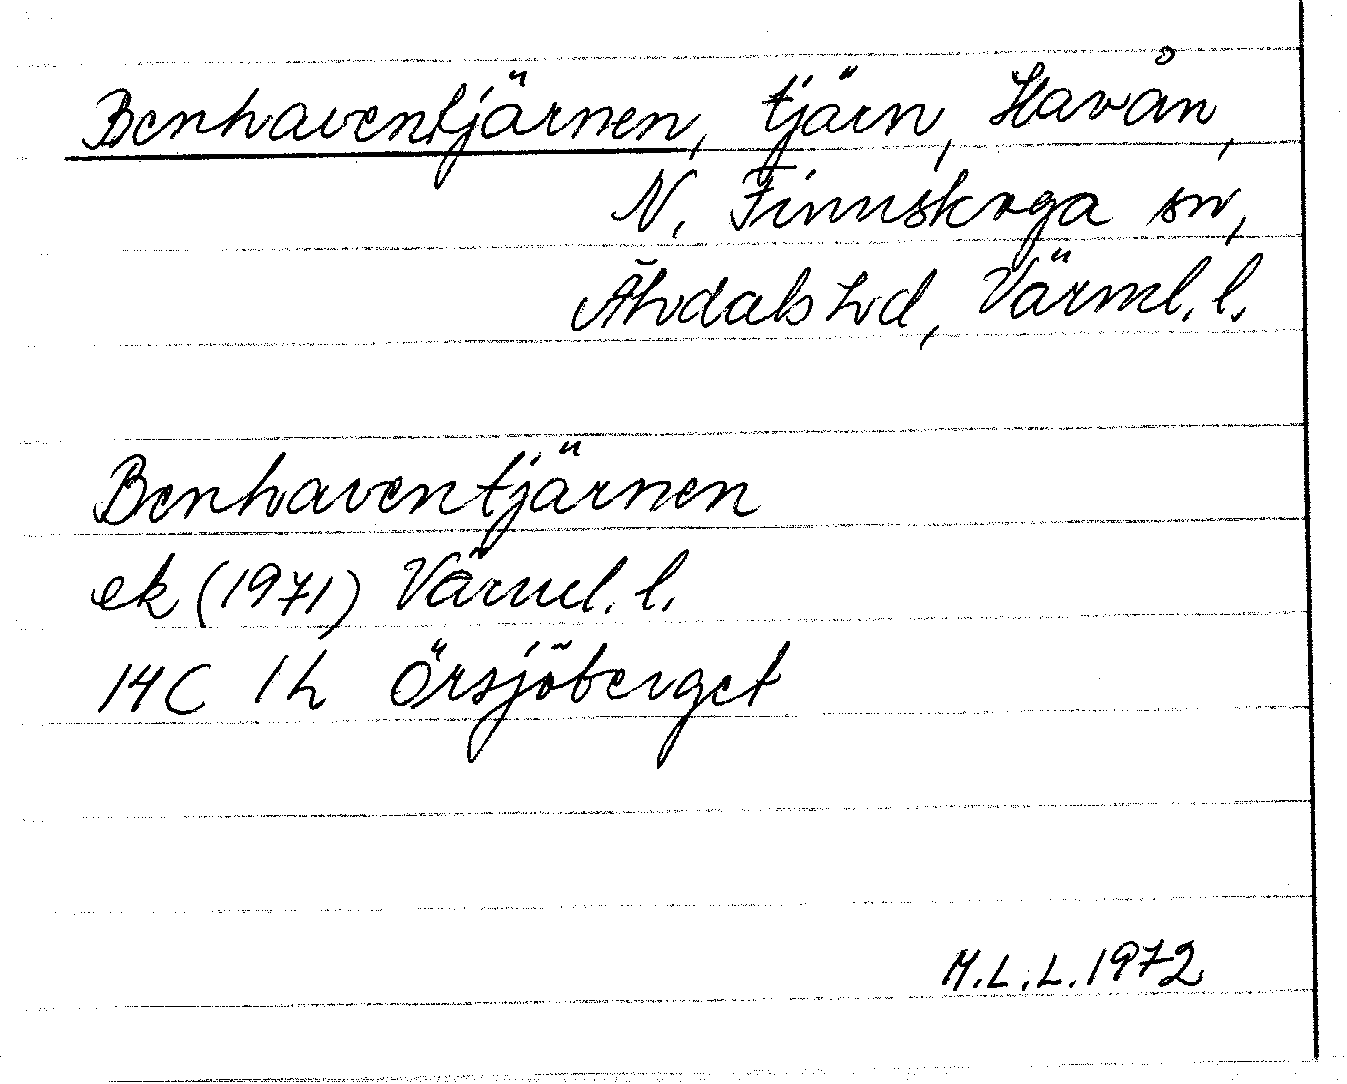 Benhaventjärnen, tjärn, Havån,
N. Finnskoga sn,
Älvdals hd, Värml. l.
Benhaventjärnen
ek (1971) Värml. l.
14C 1h Örsjöberget
M.L.L. 1972